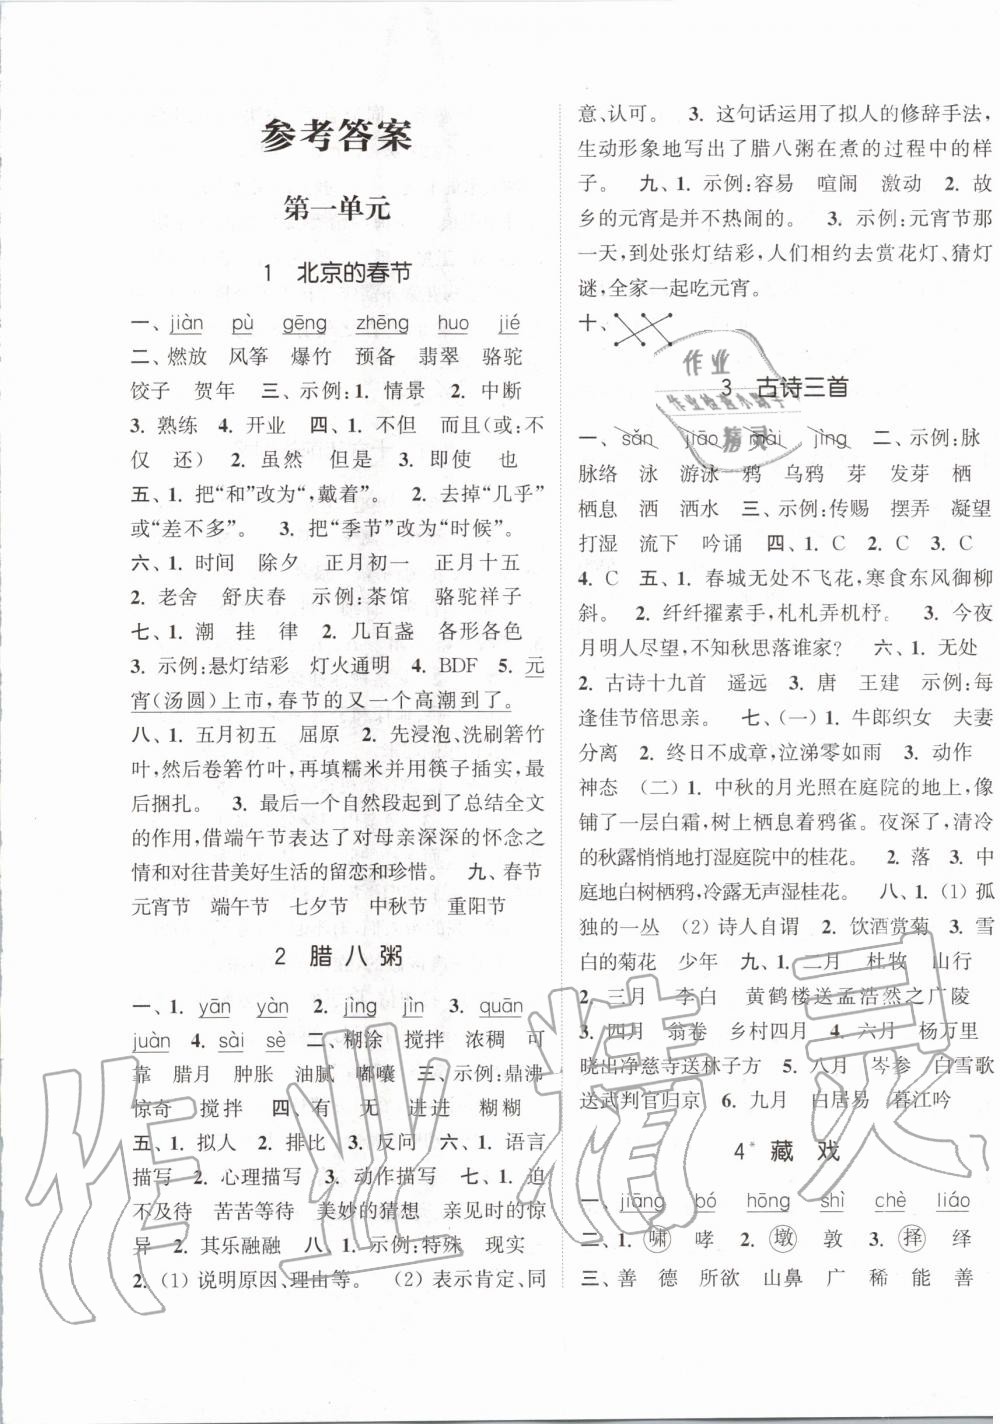 参考答案
第一单元
1 北京的春节
一、jiàn pù gēng zhēng huo jié
二、燃放 风筝 爆竹 预备 翡翠 骆驼
饺子 贺年 三、示例:1. 情景 2. 中断
3. 熟练 4. 开业 四、1. 不但 而且(或:不
仅 还) 2. 虽然 但是 3. 即使 也
五、1. 把“和”改为“,戴着”。 2. 去掉“几乎”
或“差不多”。 3. 把“季节”改为“时候”。
六、1. 时间 除夕 正月初一 正月十五
2. 老舍 舒庆春 示例:茶馆 骆驼祥子
七、1. 潮 挂 律 2. 几百盏 各形各色
3. 示例:悬灯结彩 灯火通明 4. BDF 5. 元
宵(汤圆)上市,春节的又一个高潮到了。
八、1. 五月初五 屈原 2. 先浸泡、洗刷箬竹
叶,然后卷箬竹叶,再填糯米并用筷子插实,最
后捆扎。 3. 最后一个自然段起到了总结全文
的作用,借端午节表达了对母亲深深的怀念之
情和对往昔美好生活的留恋和珍惜。 九、春节
元宵节 端午节 七夕节 中秋节 重阳节
2 腊八粥
一、1. yān yàn 2. jìng jìn 3. quān
juàn 4. sài sè 二、糊涂 搅拌 浓稠 可
靠 腊月 肿胀 油腻 嘟囔 三、示例:鼎沸
惊奇 搅拌 四、有 无 进进 糊糊
五、1. 拟人 2. 排比 3. 反问 六、1. 语言
描写 2. 心理描写 3. 动作描写 七、1. 迫
不及待 苦苦等待 美妙的猜想 亲见时的惊
异 2. 其乐融融 八、1. 示例:特殊 现实
2. (1) 说明原因、理由等。 (2) 表示肯定、同
意、认可。 3. 这句话运用了拟人的修辞手法,
生动形象地写出了腊八粥在煮的过程中的样
子。 九、1. 示例:容易 喧闹 激动 2. 故
乡的元宵是并不热闹的。 3. 示例:元宵节那
一天,到处张灯结彩,人们相约去赏花灯、猜灯
谜,全家一起吃元宵。
十、
3 古诗三首
一、sǎn jiāo mài jìng 二、示例:脉
脉络 泳 游泳 鸦 乌鸦 芽 发芽 栖
栖息 洒 洒水 三、示例:传赐 摆弄 凝望
打湿 流下 吟诵 四、1. C 2. C 3. C
4. C 五、1. 春城无处不飞花,寒食东风御柳
斜。 2. 纤纤擢素手,札札弄机杼。 3. 今夜
月明人尽望,不知秋思落谁家? 六、1. 无处
2. 古诗十九首 遥远 3. 唐 王建 示例:每
逢佳节倍思亲。 七、(一) 1. 牛郎织女 夫妻
分离 2. 终日不成章,泣涕零如雨 3. 动作
神态 (二) 1. 中秋的月光照在庭院的地上,像
铺了一层白霜,树上栖息着鸦雀。夜深了,清冷
的秋露悄悄地打湿庭院中的桂花。 2. 落 3. 中
庭地白树栖鸦,冷露无声湿桂花。 八、1. (1) 孤
独的一丛 (2) 诗人自谓 2. 饮酒赏菊 3. 雪
白的菊花 少年 九、1. 二月 杜牧 山行
2. 三月 李白 黄鹤楼送孟浩然之广陵
3. 四月 翁卷 乡村四月 4. 六月 杨万里
晓出净慈寺送林子方 5. 八月 岑参 白雪歌
送武判官归京 6. 九月 白居易 暮江吟
4* 藏戏
一、jiāng bó hōng shì chè liáo
二、1. 啸 哮 2. 墩 敦 3. 择 绎
三、善 德 所欲 山鼻 广 稀 能 善
作业
作业检查小助手
精灵
作业精灵